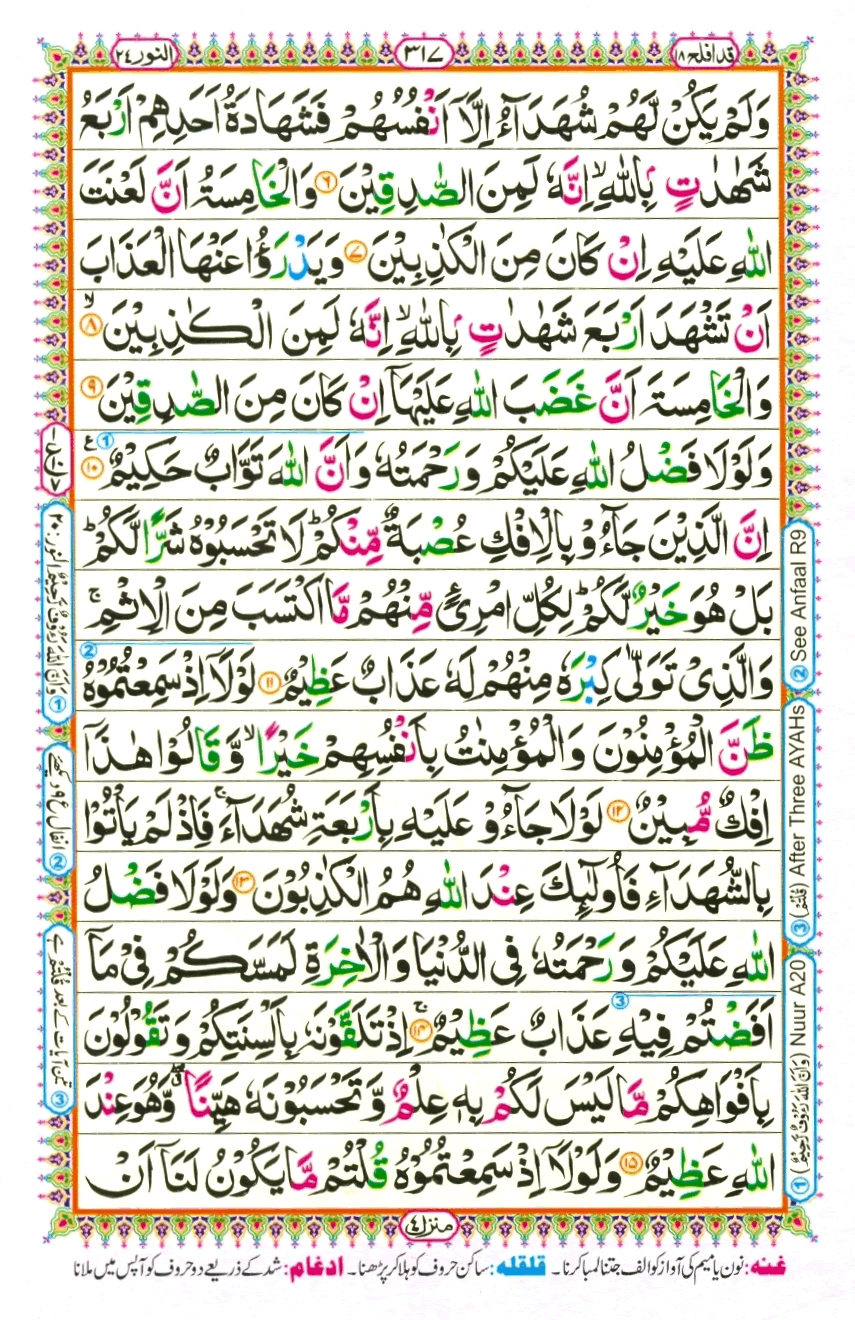 قد افلح ١٨
٣١٧
النور ٢٤
وَلَمْ يَكُنْ لَّهُمْ شُهَدَآءُ اِلَّاۤ اَنْفُسُهُمْ فَشَهَادَةُ اَحَدِهِمْ اَرْبَعُ
شَهٰدٰتٍۭ بِاللّٰهِ ۙ اِنَّهٗ لَمِنَ الصّٰدِقِيْنَ ٦ وَالْخَامِسَةُ اَنَّ لَعْنَتَ
اللّٰهِ عَلَيْهِ اِنْ كَانَ مِنَ الْكٰذِبِيْنَ ٧ وَيَدْرَؤُا عَنْهَا الْعَذَابَ
اَنْ تَشْهَدَ اَرْبَعَ شَهٰدٰتٍۭ بِاللّٰهِ ۙ اِنَّهٗ لَمِنَ الْكٰذِبِيْنَ ٨ ۙ
وَالْخَامِسَةَ اَنَّ غَضَبَ اللّٰهِ عَلَيْهَاۤ اِنْ كَانَ مِنَ الصّٰدِقِيْنَ ٩
وَلَوْلَا فَضْلُ اللّٰهِ عَلَيْكُمْ وَرَحْمَتُهٗ وَاَنَّ اللّٰهَ تَوَّابٌ حَكِيْمٌ ١٠ ع ①
اِنَّ الَّذِيْنَ جَآءُوْ بِالْاِفْكِ عُصْبَةٌ مِّنْكُمْ ؕ لَا تَحْسَبُوْهُ شَرًّا لَّكُمْ ؕ
بَلْ هُوَ خَيْرٌ لَّكُمْ ؕ لِكُلِّ امْرِئٍ مِّنْهُمْ مَّا اكْتَسَبَ مِنَ الْاِثْمِ ۚ
وَالَّذِيْ تَوَلّٰى كِبْرَهٗ مِنْهُمْ لَهٗ عَذَابٌ عَظِيْمٌ ١١ لَوْلَاۤ اِذْ سَمِعْتُمُوْهُ ②
ظَنَّ الْمُؤْمِنُوْنَ وَالْمُؤْمِنٰتُ بِاَنْفُسِهِمْ خَيْرًا ۙ وَّقَالُوْا هٰذَاۤ
اِفْكٌ مُّبِيْنٌ ١٢ لَوْلَا جَآءُوْ عَلَيْهِ بِاَرْبَعَةِ شُهَدَآءَ ۚ فَاِذْ لَمْ يَاْتُوْا
بِالشُّهَدَآءِ فَاُولٰٓئِكَ عِنْدَ اللّٰهِ هُمُ الْكٰذِبُوْنَ ١٣ وَلَوْلَا فَضْلُ
اللّٰهِ عَلَيْكُمْ وَرَحْمَتُهٗ فِى الدُّنْيَا وَالْاٰخِرَةِ لَمَسَّكُمْ فِيْ مَاۤ
اَفَضْتُمْ فِيْهِ عَذَابٌ عَظِيْمٌ ١٤ ۚ اِذْ تَلَقَّوْنَهٗ بِاَلْسِنَتِكُمْ وَتَقُوْلُوْنَ ③
بِاَفْوَاهِكُمْ مَّا لَيْسَ لَكُمْ بِهٖ عِلْمٌ وَّتَحْسَبُوْنَهٗ هَيِّنًا ۖ وَّهُوَ عِنْدَ
اللّٰهِ عَظِيْمٌ ١٥ وَلَوْلَاۤ اِذْ سَمِعْتُمُوْهُ قُلْتُمْ مَّا يَكُوْنُ لَنَاۤ اَنْ
② See Anfaal R9
③ (قُلْتُمْ) After Three AYAHs
① (وَاَنَّ اللّٰهَ رَءُوْفٌ رَّحِيْمٌ) Nuur A20
① وَاَنَّ اللّٰهَ رَءُوْفٌ رَّحِيْمٌ النور: ٢٠
② انفال ع ٩ دیکھئے
③ تین آیات کے بعد قُلْتُمْ ہے
منزل ٤
غنه: نون یا میم کی آواز کو الف جتنا لمبا کرنا۔ قلقله: ساکن حروف کو ہلا کر پڑھنا۔ ادغام: شد کے ذریعے دو حروف کو آپس میں ملانا